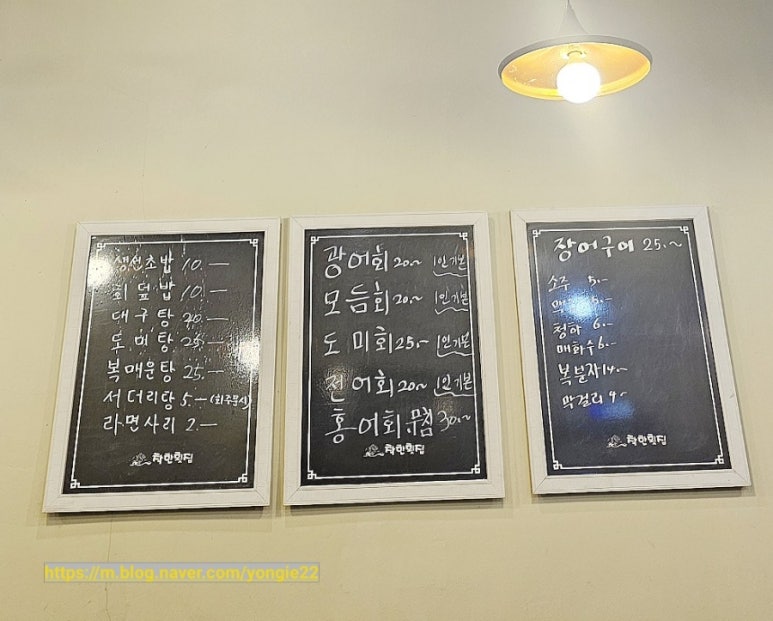 생선초밥 10.—
회덮밥 10.—
대구탕 20.—
도미탕 25.—
복매운탕 25.—
서더리탕 5.— (회주문시)
라면사리 2.—
착한횟집
광어회 20.~ 1인기본
모듬회 20.~ 1인기본
도미회 25.~ 1인기본
전어회 20~ 1인기본
홍어회무침 30.~
착한횟집
장어구이 25.~
소주 5.~
청하 6.~
매화수 6.~
복분자 14.~
막걸리 4.~
착한횟집
https://m.blog.naver.com/yongie22